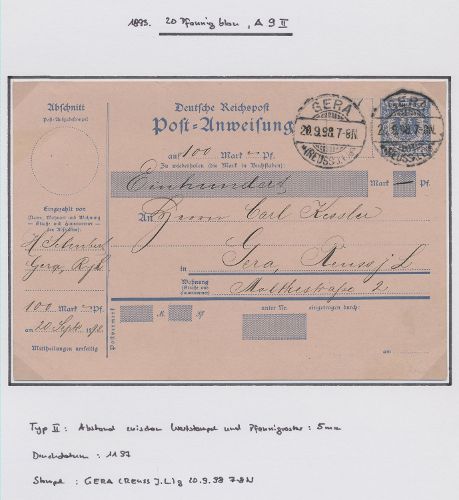 1893. 20 Pfennig blau, A 9 II
Abschnitt
Post-Aufgabestempel
Deutsche Reichspost
Post-Anweisung
GERA
20.9.98.7-8N.
(REUSS J.L.)
GERA
20.9.98.7-8N.
(REUSS J.L.)
auf 100 Mark — Pf.
Zu wiederholen (die Mark in Buchstaben)
Einhundert Mark — Pf.
Eingezahlt von
Name, Wohnort und Wohnung
(Straße und Hausnummer)
des Absenders:
An Herrn Carl Kessler
Gera, R.j.L.
in Gera, Reuss j L.
Wohnung
(Straße und Hausnummer)
Moltkestraße 2
100 Mark — Pf.
am 20 Sept. 1898
Mittheilungen umseitig
Postvermerk
M. Pf.
unter Nr.
eingetragen durch:
am
Typ II: Abstand zwischen Wertstempel und Pfennigraster: 5mm
Druckdatum: 1197
Stempel: GERA (REUSS J.L.) g 20.9.98 7-8N